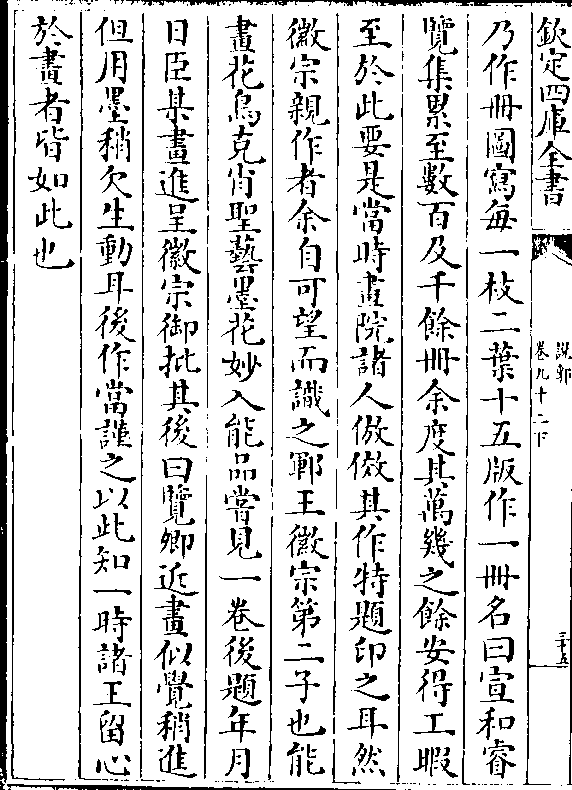 欽定四庫全書
說郛
卷九十二下
三十五
乃作冊圖寫每一枝二葉十五版作一冊名曰宣和睿
覽集累至數百及千餘冊余度其萬幾之餘安得工暇
至於此要是當時畫院諸人倣傚其作特題印之耳然
徽宗親作者余自可望而識之鄆王徽宗第二子也能
畫花鳥克肖聖藝墨花妙入能品嘗見一卷後題年月
日臣某畫進呈徽宗御批其後曰覽卿近畫似覺稍進
但用墨稍欠生動耳後作當謹之以此知一時諸王留心
於畫者皆如此也